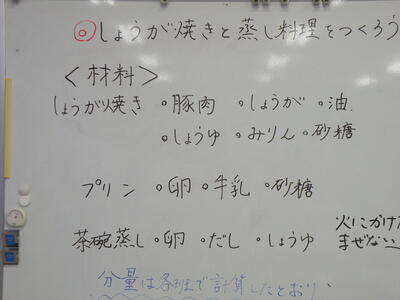 ◎しょうが焼きと蒸し料理をつくろう
<材料>
しょうが焼き ◦豚肉 ◦しょうが ◦油
◦しょうゆ ◦みりん ◦砂糖
プリン ◦卵 ◦牛乳 ◦砂糖
茶碗蒸し ◦卵 ◦だし ◦しょうゆ
火にかけた
まぜない
分量は各班で計算したとおり、